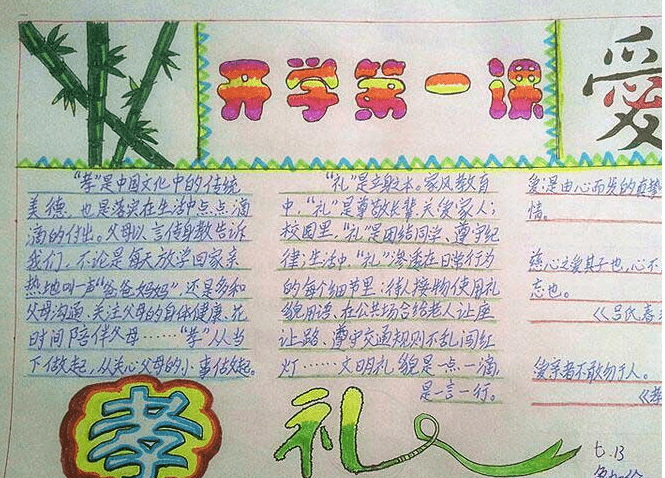 开学第一课
爱
“孝”是中国文化中的传统
美德，也是落实在生活中点点滴
滴的付出。父母以言传身教告诉
我们，不论是每天放学回家亲
热地叫一声“爸爸妈妈”，还是多和
父母沟通、关注父母的身体健康、花
时间陪伴父母……“孝”从当
下做起，从关心父母的小事做起。
孝
“礼”是立身之本。家风教育
中，“礼”是尊敬长辈、关爱家人；
校园里，“礼”是团结同学、遵守纪
律；生活中，“礼”渗透在日常行为
的每个细节里：待人接物使用礼
貌用语、在公共场合给老人让座
让路、遵守交通规则不乱闯红
灯……文明礼貌是一点一滴，
是一言一行。
礼
爱：是由心而发的真挚
情。
慈心之爱其子也，心不
忘也。
《吕氏春
爱亲者不敢恶于人。
《孝
七.13